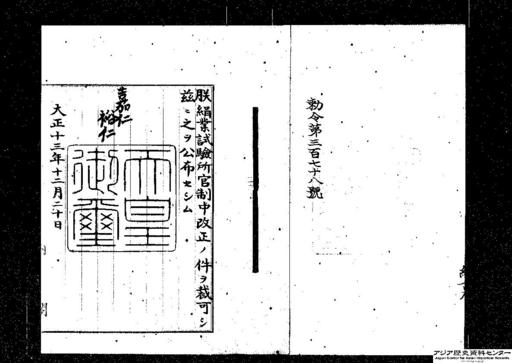 勅令第三百七十八號
朕絹業試驗所官制中改正ノ件ヲ裁可シ
茲ニ之ヲ公布セシム
嘉仁
裕仁
天皇
御璽
大正十三年十二月二十日
アジア歴史資料センター
Japan Center for Asian Historical Records